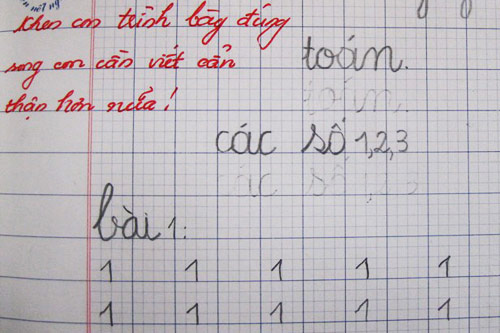 Khen con trình bày đúng
song con cần viết cẩn
thận hơn nữa!
toán.
các số 1,2,3
bài 1:
1 1 1 1 1
1 1 1 1 1